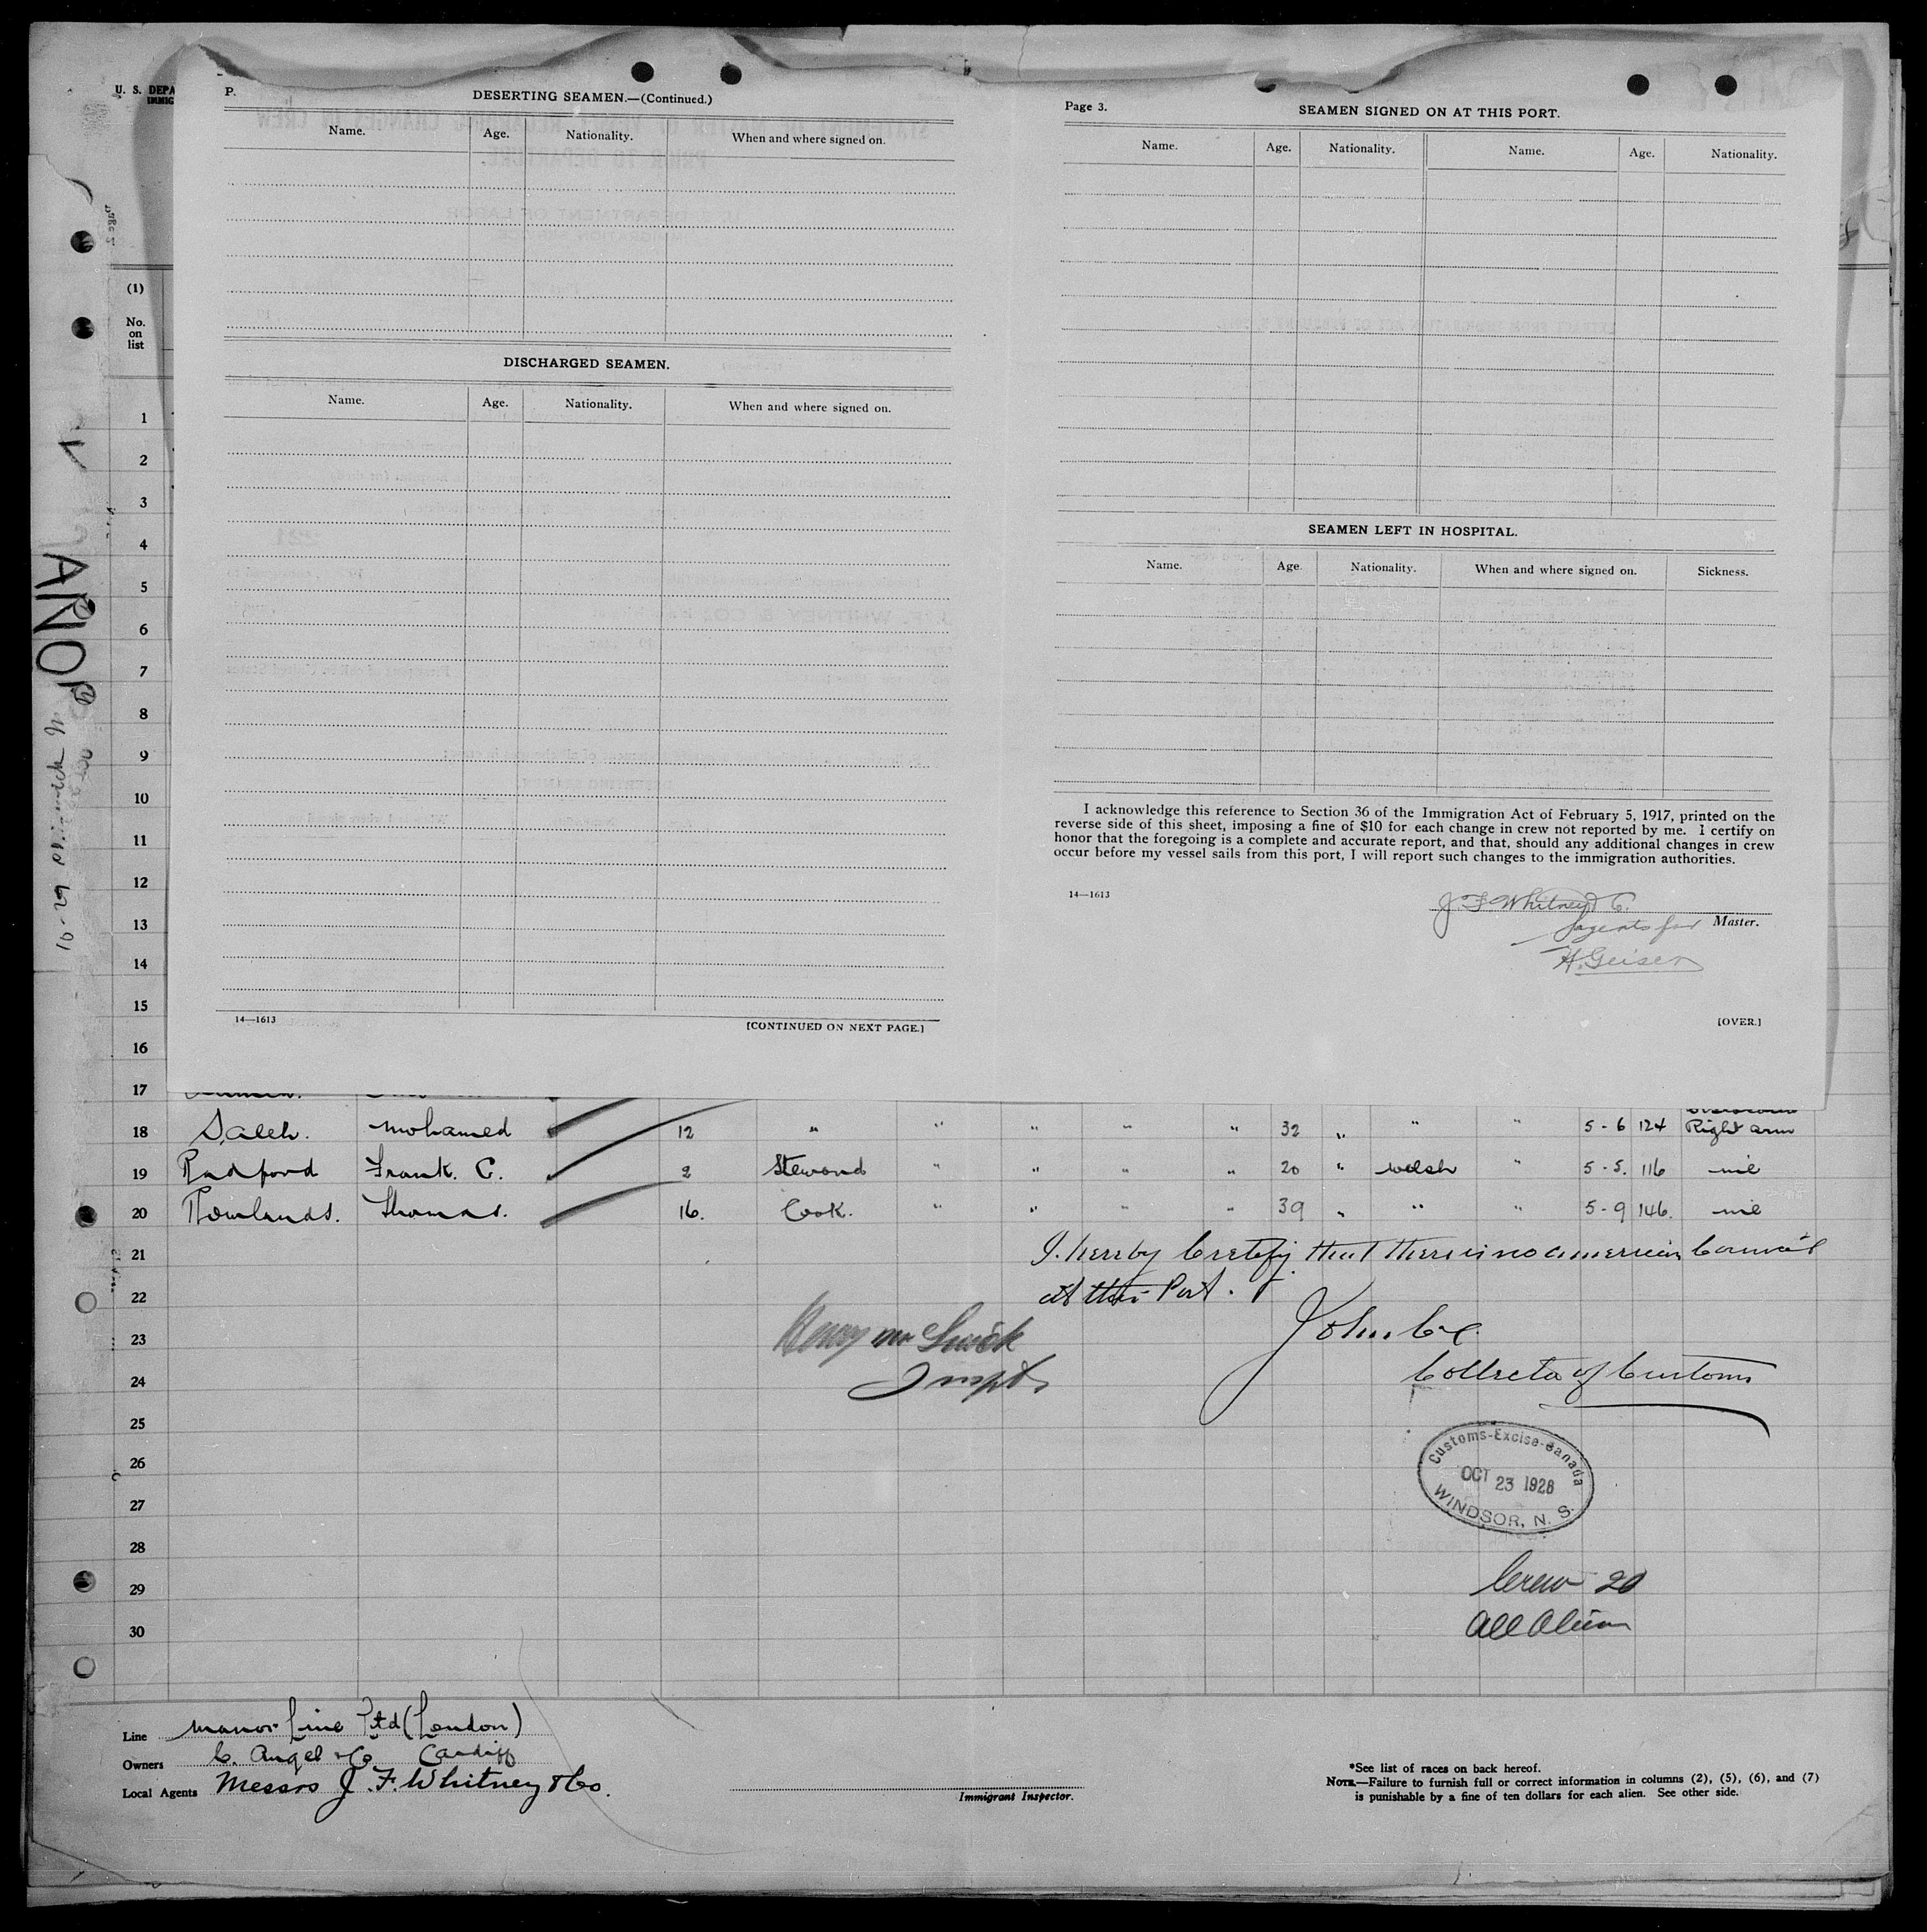 U. S. DEPA
IMMIG
P.
DESERTING SEAMEN.—(Continued.)
Name. Age. Nationality. When and where signed on.
DISCHARGED SEAMEN.
Name. Age. Nationality. When and where signed on.
14—1613
[CONTINUED ON NEXT PAGE.]
Page 3.
SEAMEN SIGNED ON AT THIS PORT.
Name. Age. Nationality. Name. Age. Nationality.
SEAMEN LEFT IN HOSPITAL.
Name. Age. Nationality. When and where signed on. Sickness.
I acknowledge this reference to Section 36 of the Immigration Act of February 5, 1917, printed on the
reverse side of this sheet, imposing a fine of $10 for each change in crew not reported by me. I certify on
honor that the foregoing is a complete and accurate report, and that, should any additional changes in crew
occur before my vessel sails from this port, I will report such changes to the immigration authorities.
14—1613
J. F. Whitney & Co.
Master.
Agents for
H. Geiser
[OVER.]
(1)
No.
on
list
1
2
3
4
5
6
7
8
9
10
11
12
13
14
15
16
17
18 Saleh. Mohamed 12 " " " " " " 32 " " " 5-6 124 Right arm
19 Radford Frank. C. 2 Steward " " " " 20 " Welsh " 5-5. 116 nil
20 Rowlands. Thomas. 16. Cook. " " " " 39 " " " 5-9 146. nil
21 I hereby Certify that there is no American Consul
22 at this Port.
23
24 Inspt. Collector of Customs
25
26
27
28
29
30
Customs-Excise-Canada
OCT 23 1928
WINDSOR, N. S.
Crew 20
All Alien
Line Manor Line Ltd (London)
Owners C. Angel & Co Cardiff
Local Agents Messrs J. F. Whitney & Co.
Immigrant Inspector.
*See list of races on back hereof.
NOTE.—Failure to furnish full or correct information in columns (2), (5), (6), and (7)
is punishable by a fine of ten dollars for each alien. See other side.